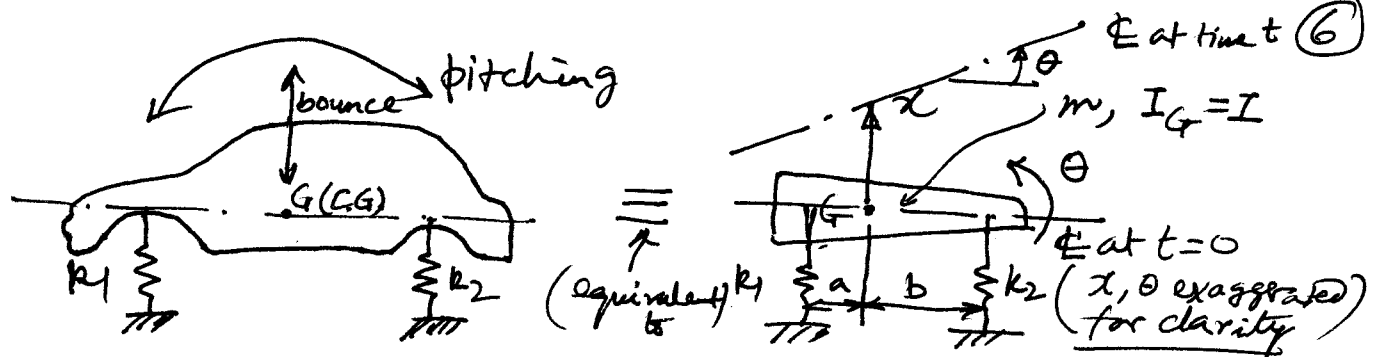 pitching
bounce
G(C.G)
k1
k2
(equivalent)
to
℄ at time t
6
θ
x
m, I_G = I
θ
G
℄ at t=0
k1
a
b
k2
(x, θ exaggrated)
for clarity